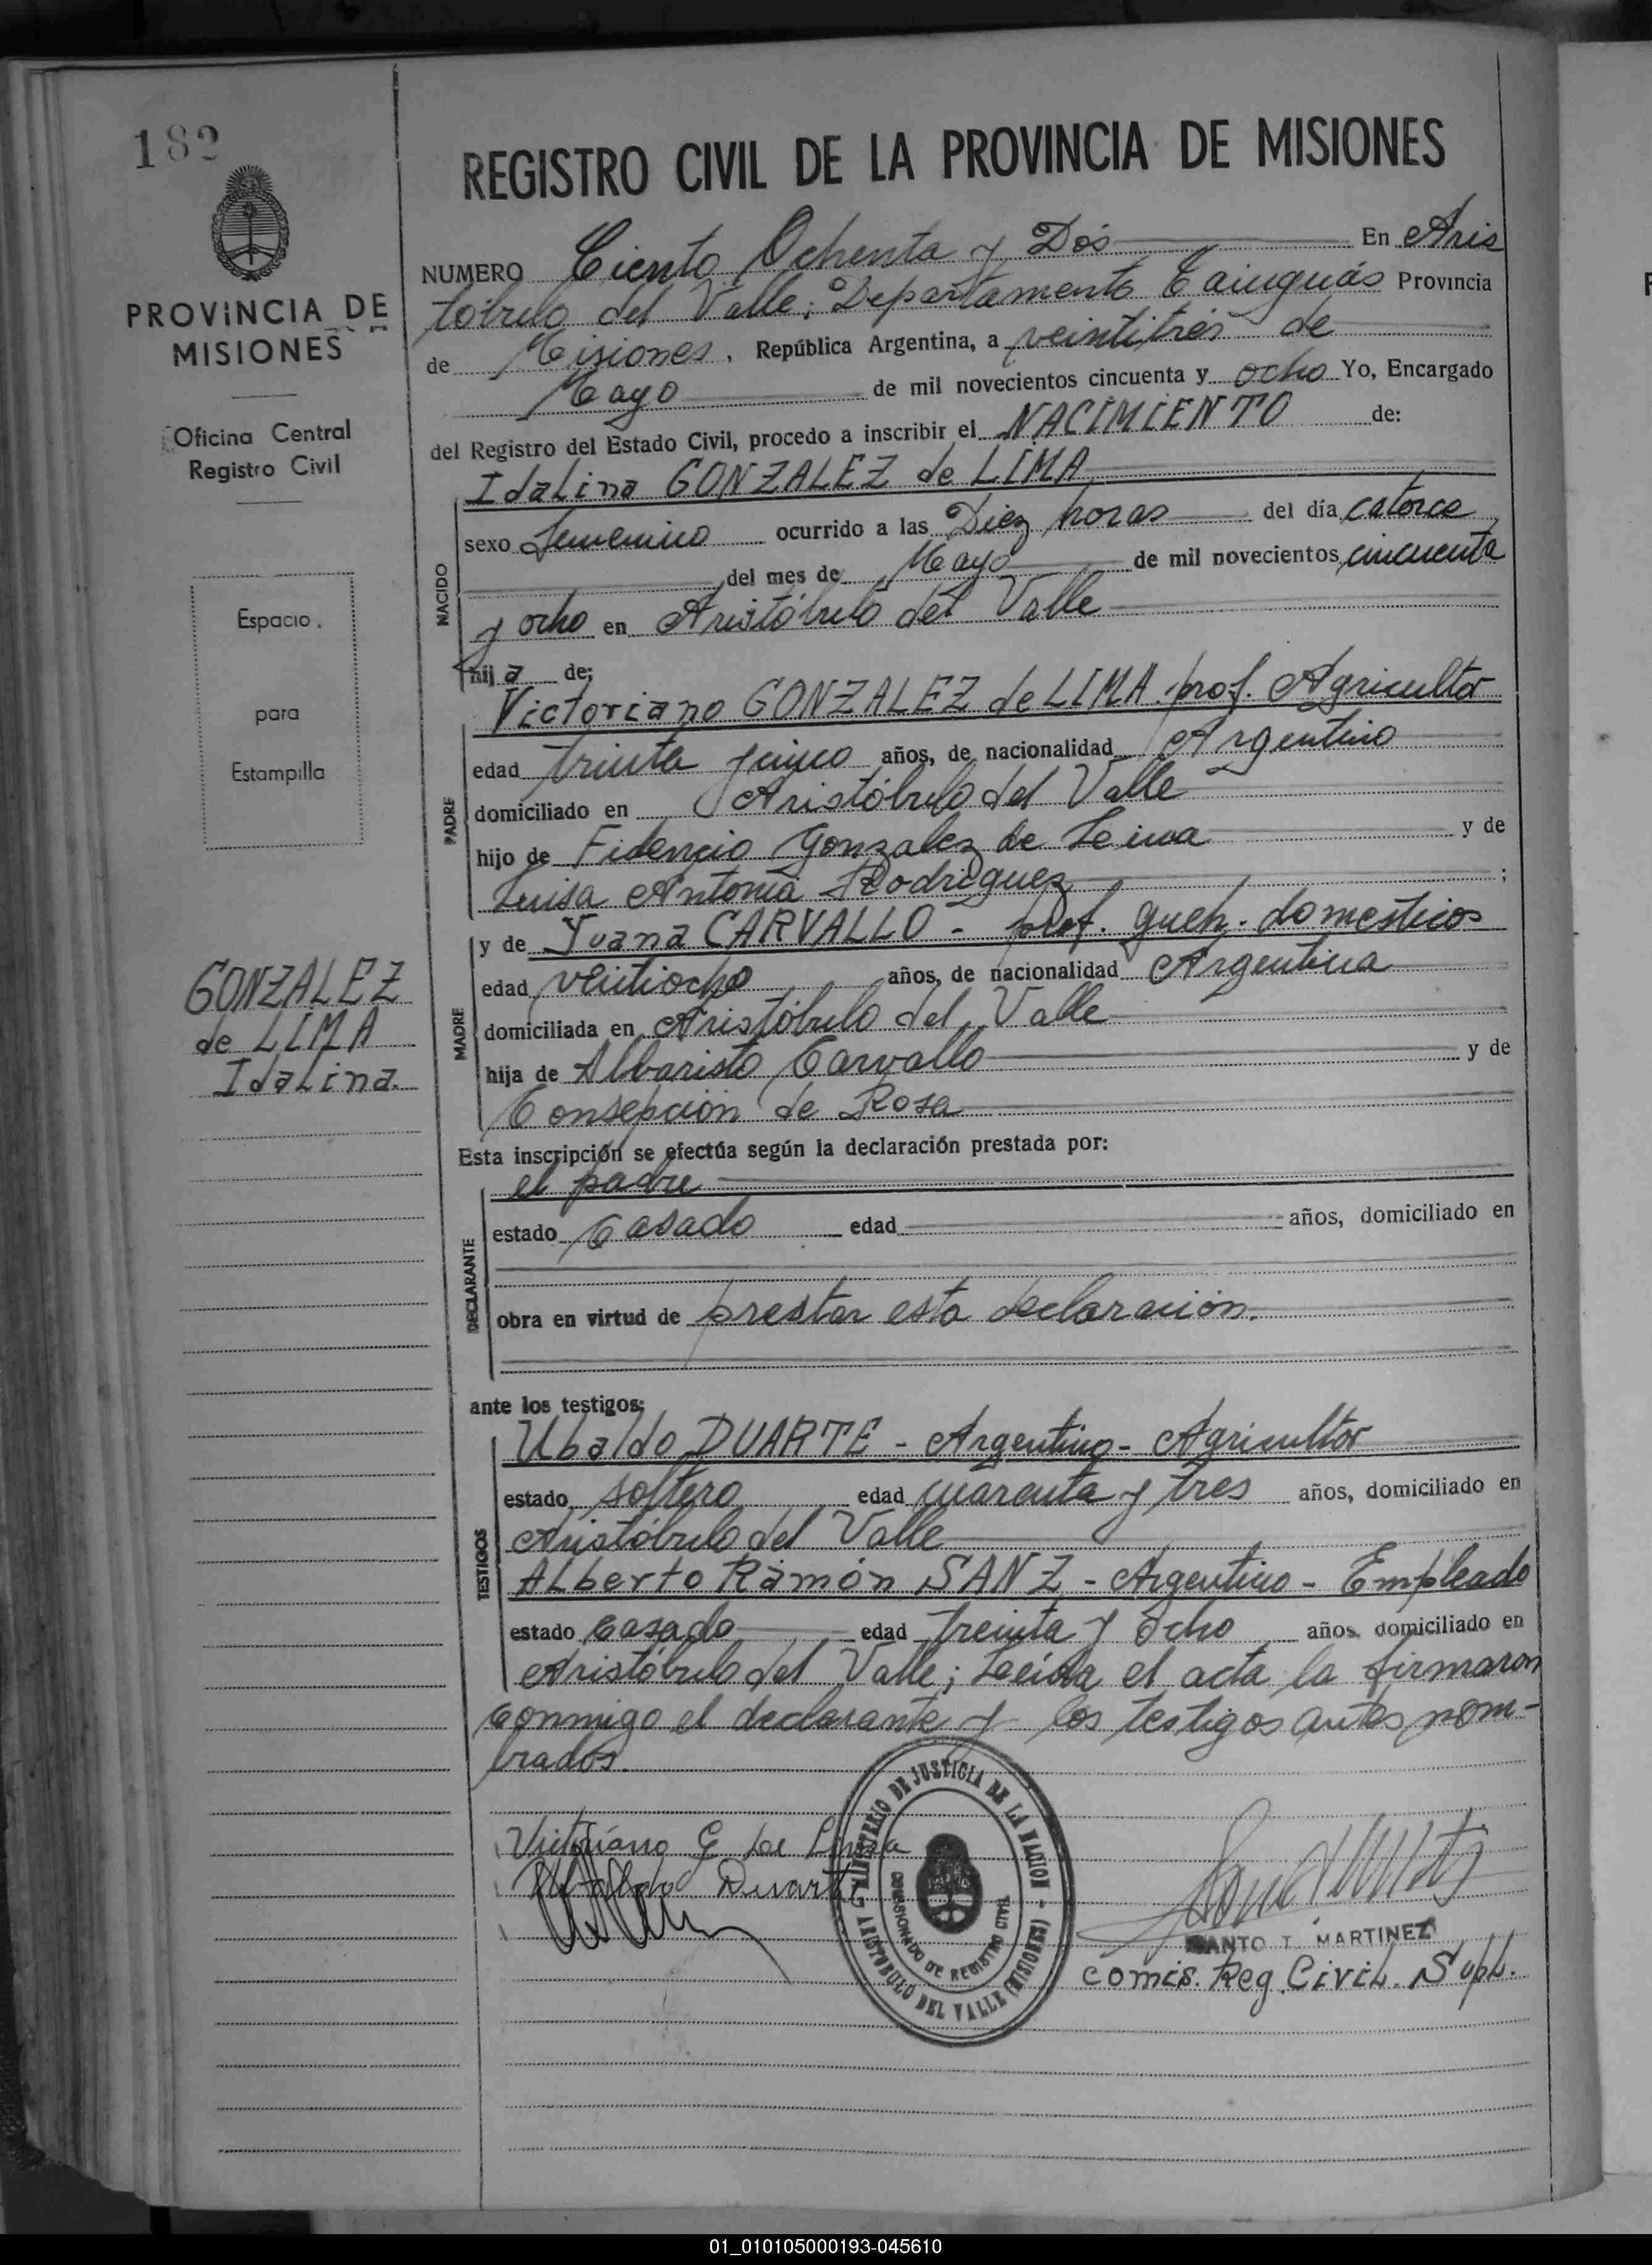 182
PROVINCIA DE
MISIONES
Oficina Central
Registro Civil
Espacio
para
Estampilla
GONZALEZ
de LIMA
Idalina.
REGISTRO CIVIL DE LA PROVINCIA DE MISIONES
NUMERO Ciento Ochenta y Dos En Aris
tóbulo del Valle; Departamento Cainguás Provincia
de Misiones, República Argentina, a veintitrés de
Mayo de mil novecientos cincuenta y ocho Yo, Encargado
del Registro del Estado Civil, procedo a inscribir el NACIMIENTO de:
Idalina GONZALEZ de LIMA
NACIDO
sexo femenino ocurrido a las Diez horas del día catorce
del mes de Mayo de mil novecientos cincuenta
y ocho en Aristóbulo del Valle
hija de:
Victoriano GONZALEZ de LIMA. prof. Agricultor
PADRE
edad trinta y cinco años, de nacionalidad Argentino
domiciliado en Aristóbulo del Valle
hijo de Fidencio Gonzalez de Leima y de
Luisa Antonia Rodriguez ;
y de Juana CARVALLO - prof. queh. domesticos
MADRE
edad veintiocho años, de nacionalidad Argentina
domiciliada en Aristóbulo del Valle
hija de Albaristo Carvallo y de
Consepcion de Rosa
Esta inscripción se efectúa según la declaración prestada por:
el padre
DECLARANTE
estado Casado edad años, domiciliado en
obra en virtud de prestar esta declaración.
ante los testigos:
Ubaldo DUARTE - Argentino - Agricultor
TESTIGOS
estado soltero edad cuarenta y tres años, domiciliado en
Aristóbulo del Valle
Alberto Ramón SANZ - Argentino - Empleado
estado Casado edad treinta y ocho años, domiciliado en
Aristóbulo del Valle; Leída el acta la firmaron
conmigo el declarante y los testigos antes nom-
brados.
Victoriano G de Lima
Duarte
MINISTERIO DE JUSTICIA DE LA NACION - ARISTOBULO DEL VALLE (MISIONES)
COMISIONADO DE REGISTRO CIVIL
SANTO T. MARTINEZ
comis. Reg. Civil. Supl.
01_010105000193-045610